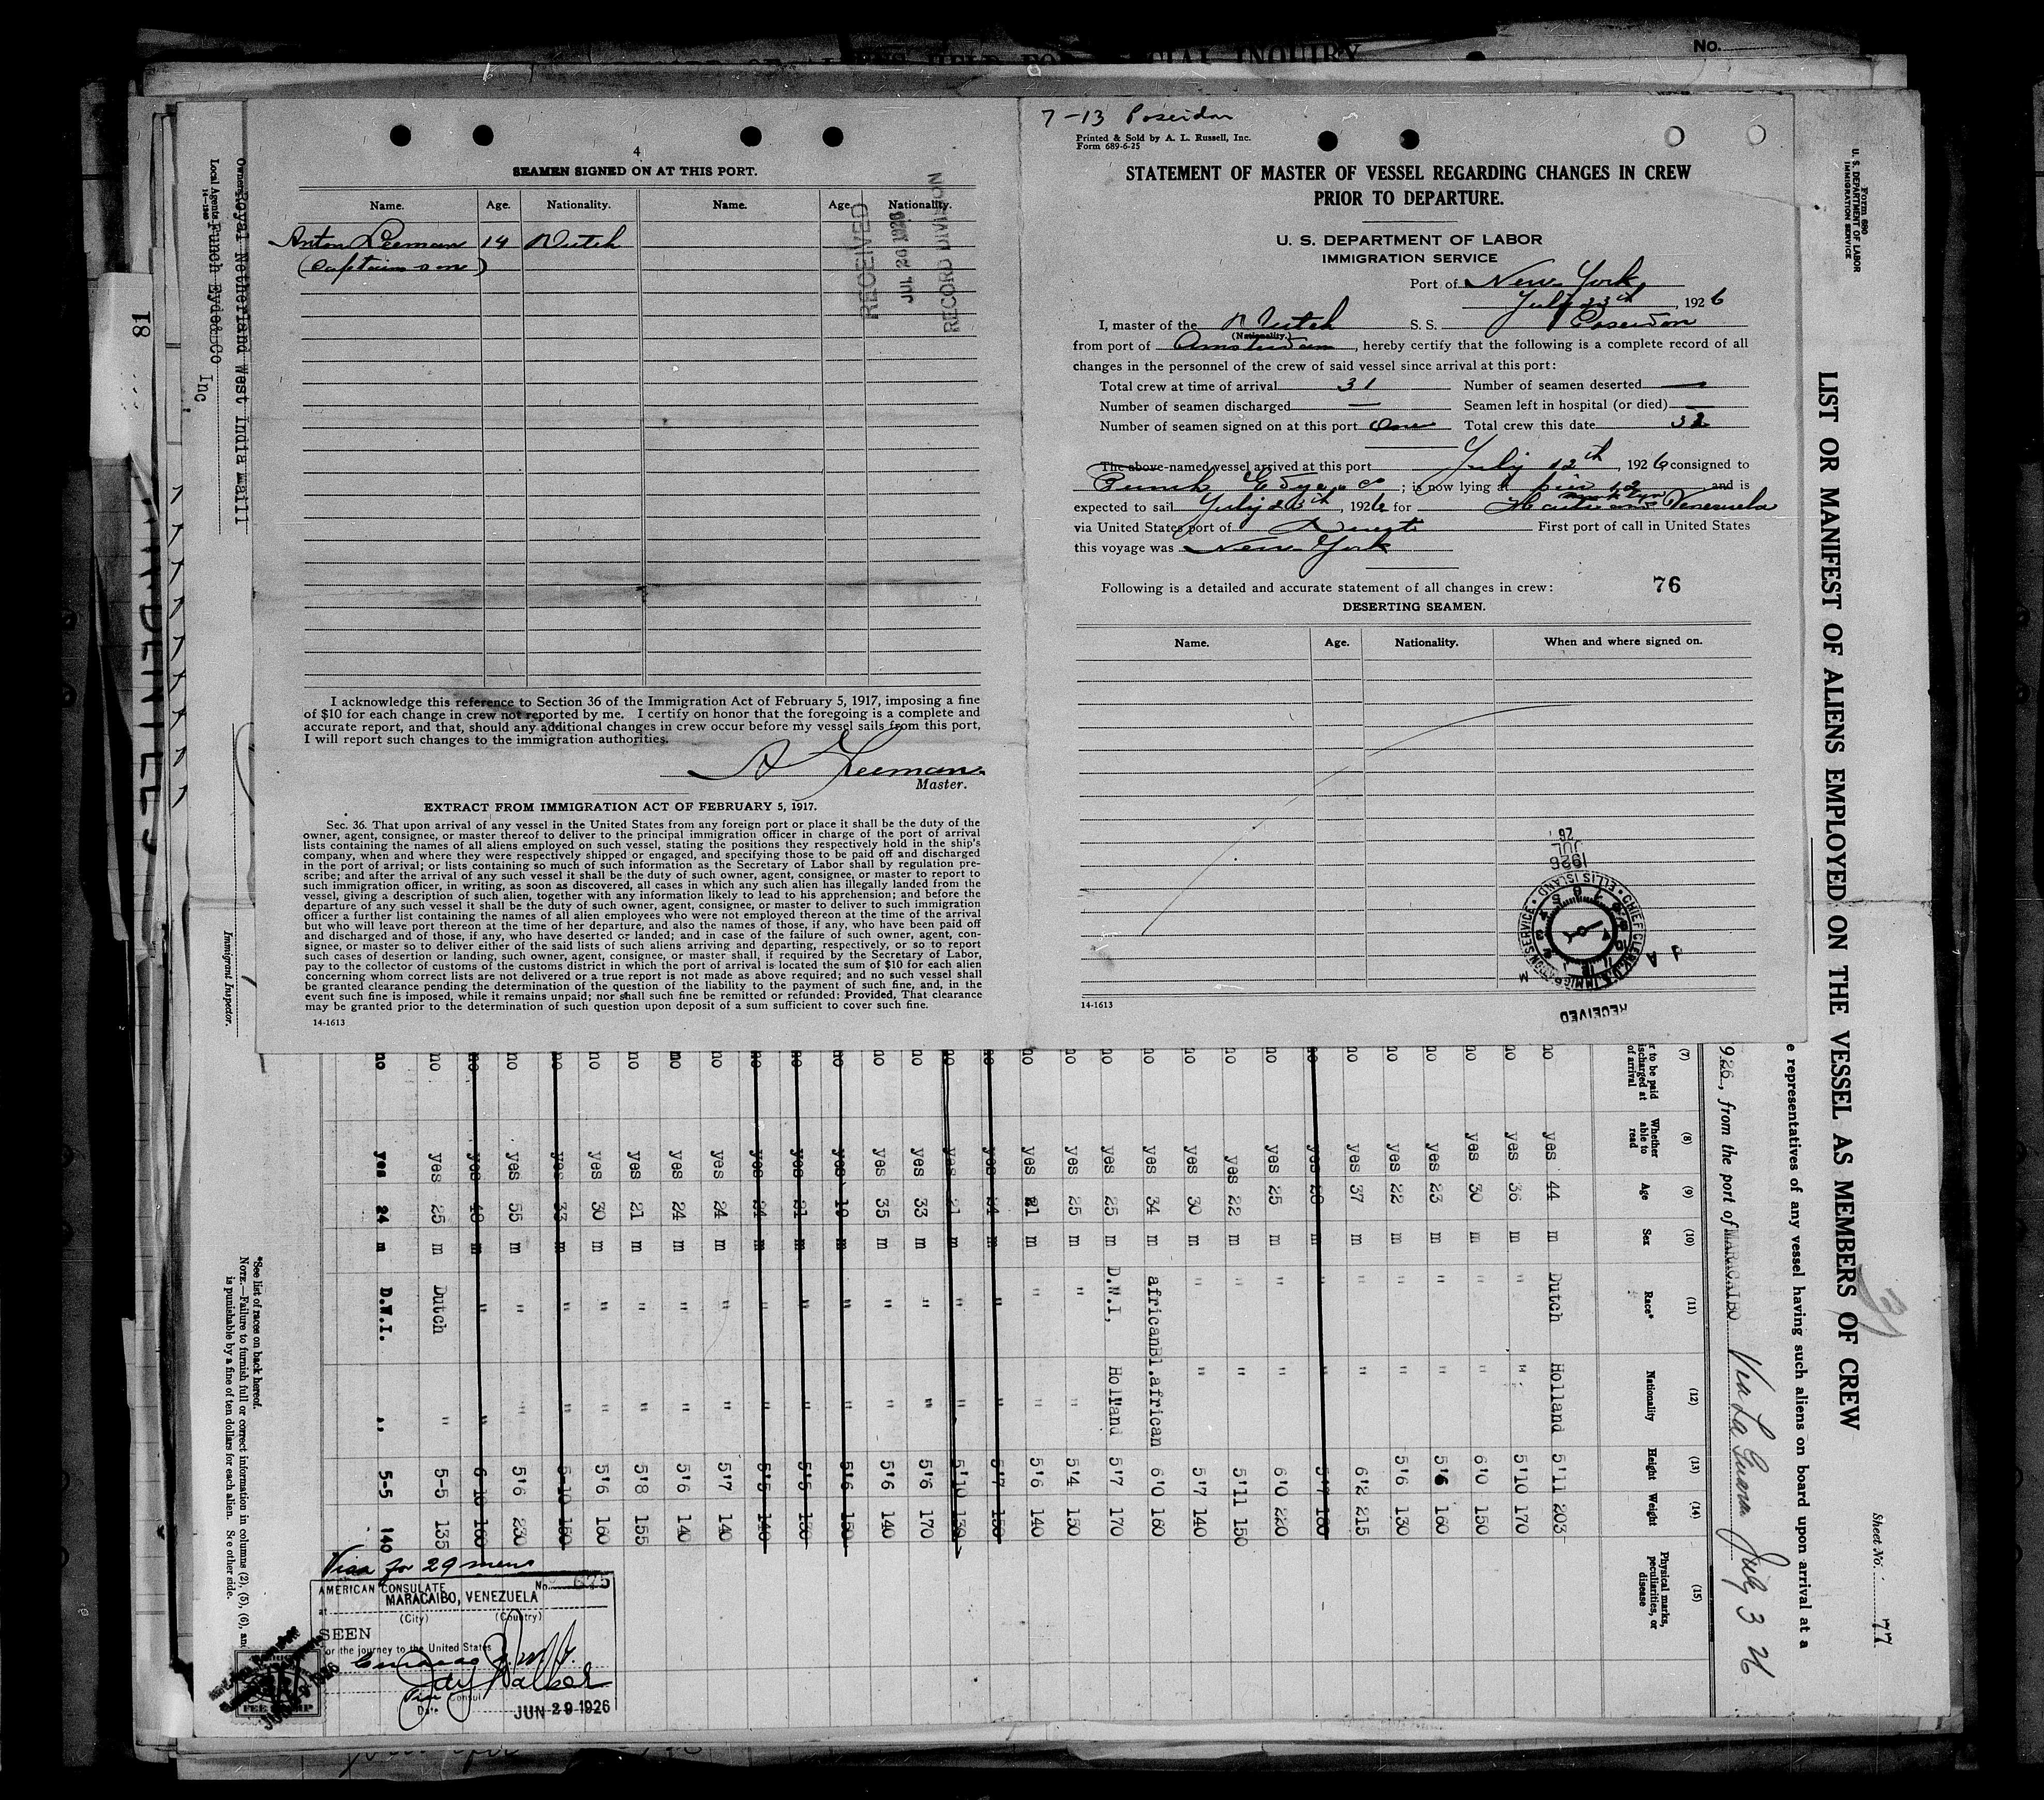 No.
4
SEAMEN SIGNED ON AT THIS PORT.
Name. Age. Nationality. Name. Age. Nationality.
Anton Leeman 14 Dutch
(Captains son)
RECEIVED
JUL 26 1926
RECORD DIVISION
I acknowledge this reference to Section 36 of the Immigration Act of February 5, 1917, imposing a fine
of $10 for each change in crew not reported by me. I certify on honor that the foregoing is a complete and
accurate report, and that, should any additional changes in crew occur before my vessel sails from this port,
I will report such changes to the immigration authorities.
A Leeman
Master.
EXTRACT FROM IMMIGRATION ACT OF FEBRUARY 5, 1917.
Sec. 36. That upon arrival of any vessel in the United States from any foreign port or place it shall be the duty of the
owner, agent, consignee, or master thereof to deliver to the principal immigration officer in charge of the port of arrival
lists containing the names of all aliens employed on such vessel, stating the positions they respectively hold in the ship's
company, when and where they were respectively shipped or engaged, and specifying those to be paid off and discharged
in the port of arrival; or lists containing so much of such information as the Secretary of Labor shall by regulation pre-
scribe; and after the arrival of any such vessel it shall be the duty of such owner, agent, consignee, or master to report to
such immigration officer, in writing, as soon as discovered, all cases in which any such alien has illegally landed from the
vessel, giving a description of such alien, together with any information likely to lead to his apprehension; and before the
departure of any such vessel it shall be the duty of such owner, agent, consignee, or master to deliver to such immigration
officer a further list containing the names of all alien employees who were not employed thereon at the time of the arrival
but who will leave port thereon at the time of her departure, and also the names of those, if any, who have been paid off
and discharged and of those, if any, who have deserted or landed; and in case of the failure of such owner, agent, con-
signee, or master so to deliver either of the said lists of such aliens arriving and departing, respectively, or so to report
such cases of desertion or landing, such owner, agent, consignee, or master shall, if required by the Secretary of Labor,
pay to the collector of customs of the customs district in which the port of arrival is located the sum of $10 for each alien
concerning whom correct lists are not delivered or a true report is not made as above required; and no such vessel shall
be granted clearance pending the determination of the question of the liability to the payment of such fine, and, in the
event such fine is imposed, while it remains unpaid; nor shall such fine be remitted or refunded: Provided, That clearance
may be granted prior to the determination of such question upon deposit of a sum sufficient to cover such fine.
14-1613
7-13 Poseidon
Printed & Sold by A. L. Russell, Inc.
Form 689-6-25
STATEMENT OF MASTER OF VESSEL REGARDING CHANGES IN CREW
PRIOR TO DEPARTURE.
U. S. DEPARTMENT OF LABOR
IMMIGRATION SERVICE
Port of New York,
July 23th, 1926
I, master of the Dutch S. S. Poseidon
(Nationality.)
from port of Amsterdam, hereby certify that the following is a complete record of all
changes in the personnel of the crew of said vessel since arrival at this port:
Total crew at time of arrival 31 Number of seamen deserted —
Number of seamen discharged — Seamen left in hospital (or died) —
Number of seamen signed on at this port One Total crew this date 32
The above-named vessel arrived at this port July 12th, 1926 consigned to
Funch Edye & Co; is now lying at pier 12 and is
expected to sail July th, 1926 for Haiti and Venezuela
via United States port of Direct First port of call in United States
this voyage was New York
Following is a detailed and accurate statement of all changes in crew: 76
DESERTING SEAMEN.
Name. Age. Nationality. When and where signed on.
1926
JUL
26
CHIEF CLERK U. S. IMMIGRATION SERVICE ELLIS ISLAND
RECEIVED
14-1613
Form 690
U. S. DEPARTMENT OF LABOR
IMMIGRATION SERVICE
Sheet No. 77
LIST OR MANIFEST OF ALIENS EMPLOYED ON THE VESSEL AS MEMBERS OF CREW
e representatives of any vessel having such aliens on board upon arrival at a
926, from the port of MARACAIBO Via La Guara July 3 26
(7) (8) (9) (10) (11) (12) (13) (14) (15)
r to be paid discharged at of arrival Whether able to read Age Sex Race* Nationality Height Weight Physical marks, peculiarities, or disease
no yes 44 m Dutch Holland 5'11 203
no yes 36 m " " 5'10 170
no yes 30 m " " 6'0 150
no yes 23 m " " 5'6 160
no yes 22 m " " 5'6 130
no yes 37 m " " 6'12 215
no yes 28 m " " 5'7 180
no yes 25 m " " 6'0 220
no yes 22 m " " 5'11 150
no yes 30 m " " 5'7 140
no yes 34 m african Bl.african 6'0 160
no yes 25 m D.W.I, Holland 5'7 170
no yes 25 m " " 5'4 150
no yes 21 m " " 5'6 140
no yes 34 m " " 5'7 150
no yes 21 m " " 5'10 130
no yes 33 m " " 5'6 170
no yes 35 m " " 5'6 140
no yes 19 m " " 5'6 150
no yes 21 m " " 5'5 130
no yes 24 m " " 5'5 140
no yes 24 m " " 5'7 140
no yes 24 m " " 5'6 140
no yes 21 m " " 5'8 155
no yes 30 m " " 5'6 160
no yes 33 m " " 5-10 150
no yes 55 m " " 5'6 230
no yes 40 m " " 6-10 160
no yes 25 m Dutch " 5-5 135
no yes 24 m D.W.I. ,, 5-5 140
Visa for 29 mens
AMERICAN CONSULATE No. 675
at MARACAIBO, VENEZUELA
(City) (Country)
SEEN
for the journey to the United States
Vice Consul
Date JUN 29 1926
FEE STAMP
*See list of races on back hereof.
NOTE.—Failure to furnish full or correct information in columns (2), (5), (6), and
is punishable by a fine of ten dollars for each alien. See other side.
Immigrant Inspector.
Owners Royal Netherland West India Maill
Local Agents Funch Eyde & Co Inc
14-1240
18